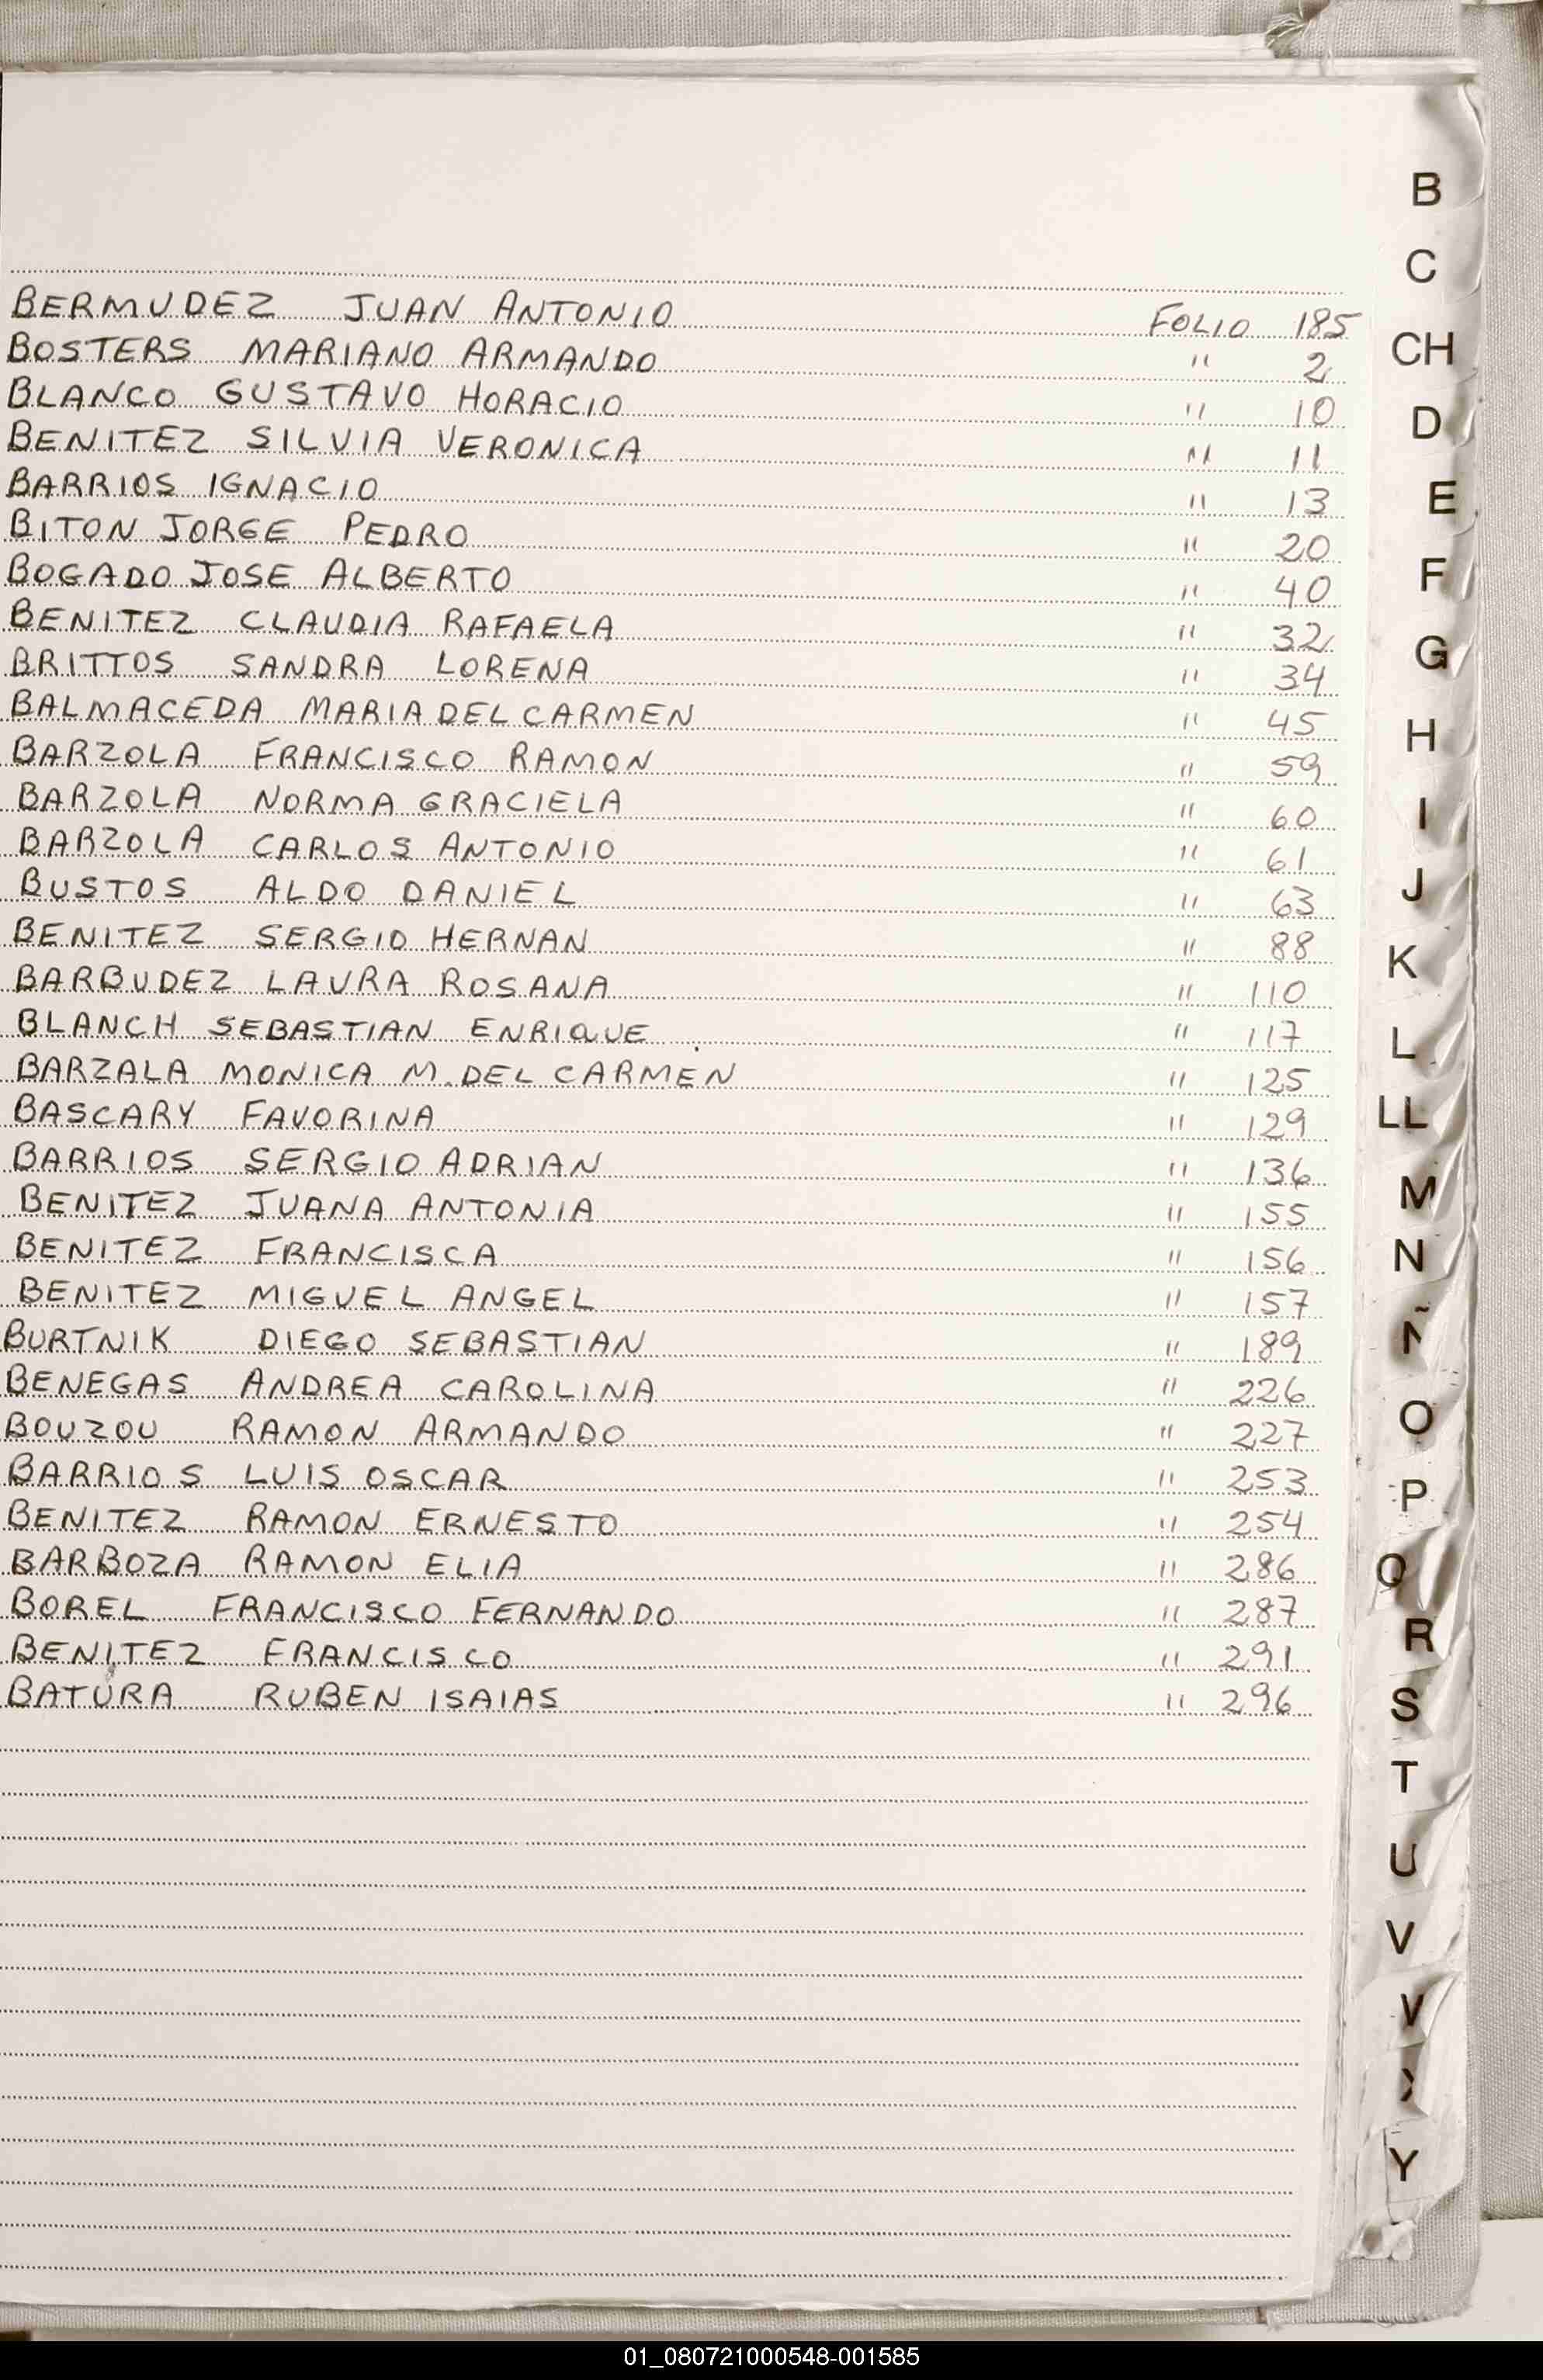 BERMUDEZ JUAN ANTONIO FOLIO 185
BOSTERS MARIANO ARMANDO " 2
BLANCO GUSTAVO HORACIO " 10
BENITEZ SILVIA VERONICA " 11
BARRIOS IGNACIO " 13
BITON JORGE PEDRO " 20
BOGADO JOSE ALBERTO " 40
BENITEZ CLAUDIA RAFAELA " 32
BRITTOS SANDRA LORENA " 34
BALMACEDA MARIA DEL CARMEN " 45
BARZOLA FRANCISCO RAMON " 59
BARZOLA NORMA GRACIELA " 60
BARZOLA CARLOS ANTONIO " 61
BUSTOS ALDO DANIEL " 63
BENITEZ SERGIO HERNAN " 88
BARBUDEZ LAURA ROSANA " 110
BLANCH SEBASTIAN ENRIQUE " 117
BARZALA MONICA M. DEL CARMEN " 125
BASCARY FAVORINA " 129
BARRIOS SERGIO ADRIAN " 136
BENITEZ JUANA ANTONIA " 155
BENITEZ FRANCISCA " 156
BENITEZ MIGUEL ANGEL " 157
BURTNIK DIEGO SEBASTIAN " 189
BENEGAS ANDREA CAROLINA " 226
BOUZOU RAMON ARMANDO " 227
BARRIOS LUIS OSCAR " 253
BENITEZ RAMON ERNESTO " 254
BARBOZA RAMON ELIA " 286
BOREL FRANCISCO FERNANDO " 287
BENITEZ FRANCISCO " 291
BATURA RUBEN ISAIAS " 296
B
C
CH
D
E
F
G
H
I
J
K
L
LL
M
N
Ñ
O
P
Q
R
S
T
U
V
X
Y
01_080721000548-001585